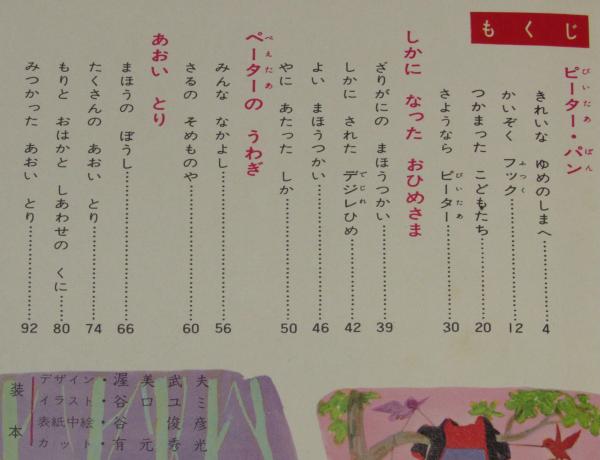 もくじ
ピーター・パン
ぴいたあ ぱん
きれいな ゆめのしまへ…………4
かいぞく フック…………12
ふっく
つかまった こどもたち…………20
さようなら ピーター…………30
ぴいたあ
しかに なった おひめさま
ざりがにの まほうつかい…………39
しかに された デジレひめ…………42
でじれ
よい まほうつかい…………46
やに あたった しか…………50
ペーターの うわぎ
ぺえたあ
みんな なかよし…………56
さるの そめものや…………60
あおい とり
まほうの ぼうし…………66
たくさんの あおい とり…………74
もりと おはかと しあわせの くに…………80
みつかった あおい とり…………92
装本
デザイン・渥美武夫
イラスト・谷口ユミ
表紙中絵・谷俊彦
カット・有元秀光